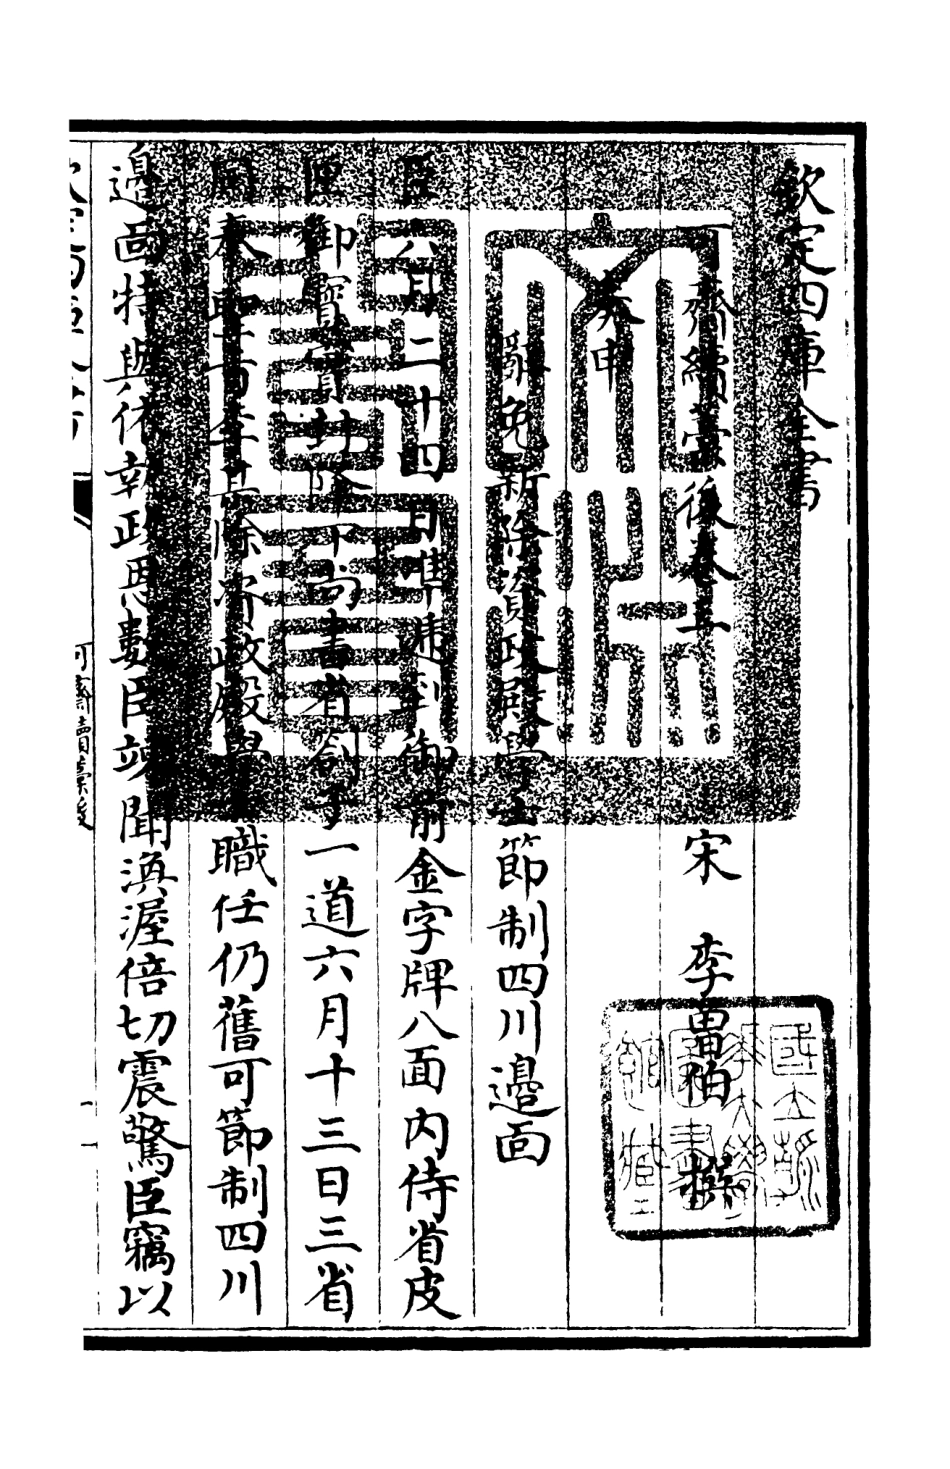 欽定四庫全書
可齋續藁後卷五
宋　李曽伯　撰
奏申
辭免新除資政殿學士節制四川邊面
臣六月二十四日準遞到御前金字牌八面内侍省皮
匣御寳實封降下尚書省劄子一道六月十三日三省
同奉聖旨李某除資政殿學士職任仍舊可節制四川
邊面特與依執政恩數臣竦聞渙渥倍切震驚臣竊以
可齋續藁後